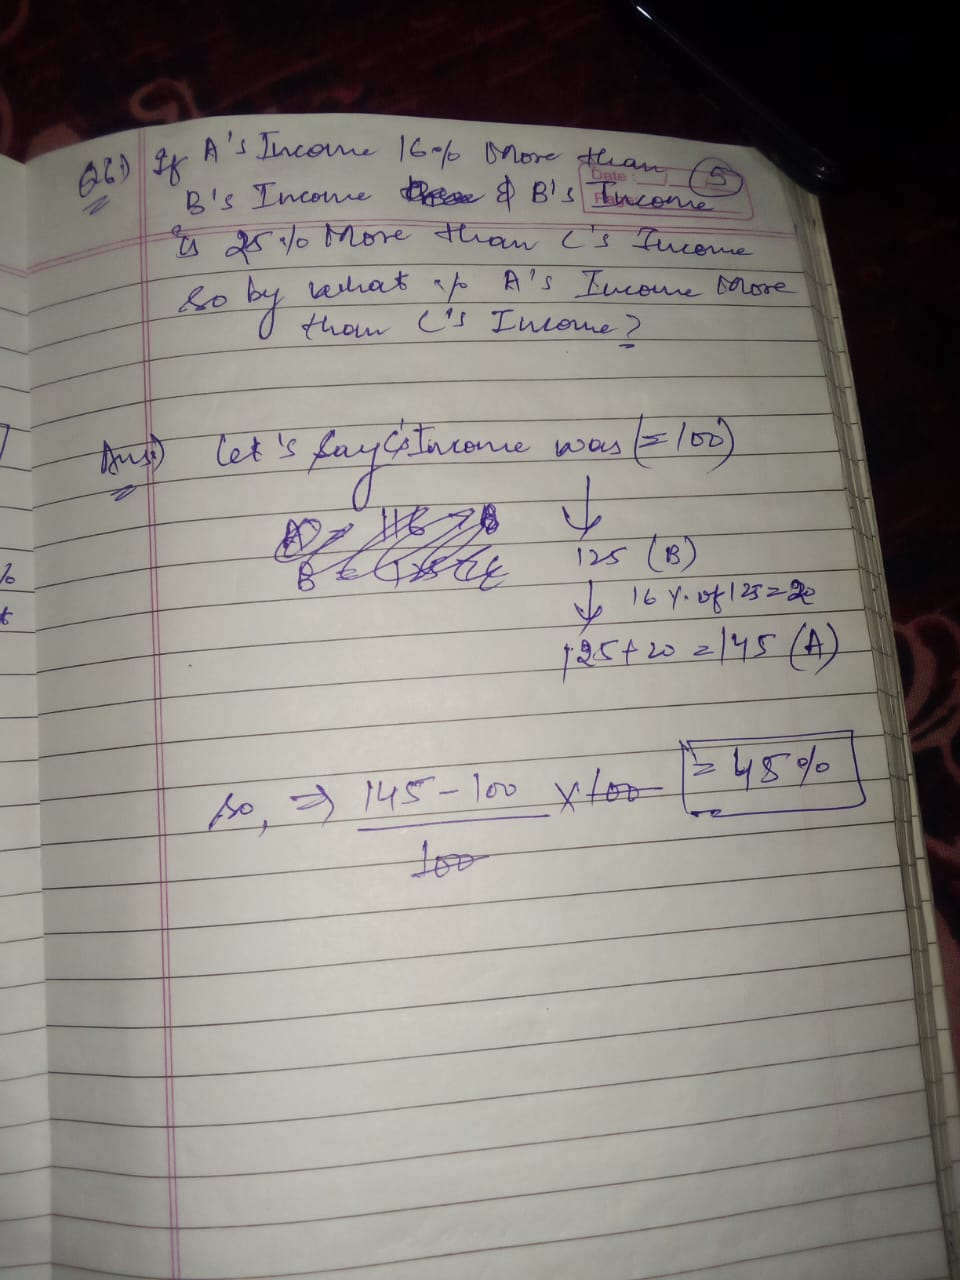 Q26) If A's Income 16% More than
5
Date :
B's Income & B's Income
is 25% More than C's Income
So by what % A's Income More
than C's Income?
Ans) Let's say C's Income was (= 100)
A = 116 → B
125 (B)
16 %. of 125 = 20
125 + 20 = 145 (A)
so, ⇒ 145 - 100 × 100 = 45%
100